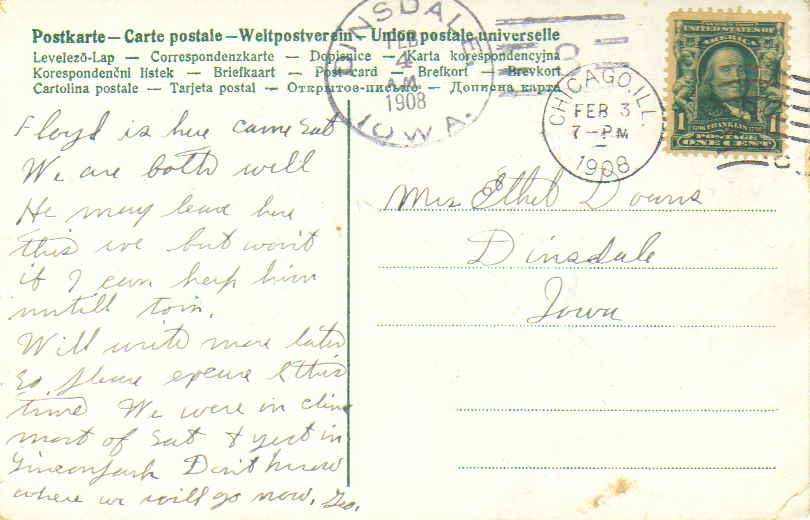 Postkarte – Carte postale – Weltpostverein – Union postale universelle
Levelező-Lap — Correspondenzkarte — Dopisnice — Karta korespondencyjna
Korespondenční lístek — Briefkaart — Post card — Brefkort — Brevkort
Cartolina postale — Tarjeta postal — Открытое письмо — Дописна карта
DINSDALE,
FEB
4
AM
1908
IOWA.
CHICAGO, ILL.
FEB 3
7-PM
1908
UNITED STATES OF AMERICA
1 FRANKLIN 1
POSTAGE
ONE CENT
Floyd is here came Sat
We are both well
He may leave here
this eve but won't
if I can help him
untill tom.
Will write more later
So please excuse this
time We were in
most of Sat & yest in
Lincoln park Don't know
where we will go now. Geo.
Mrs Ethel Downs
Dinsdale
Iowa